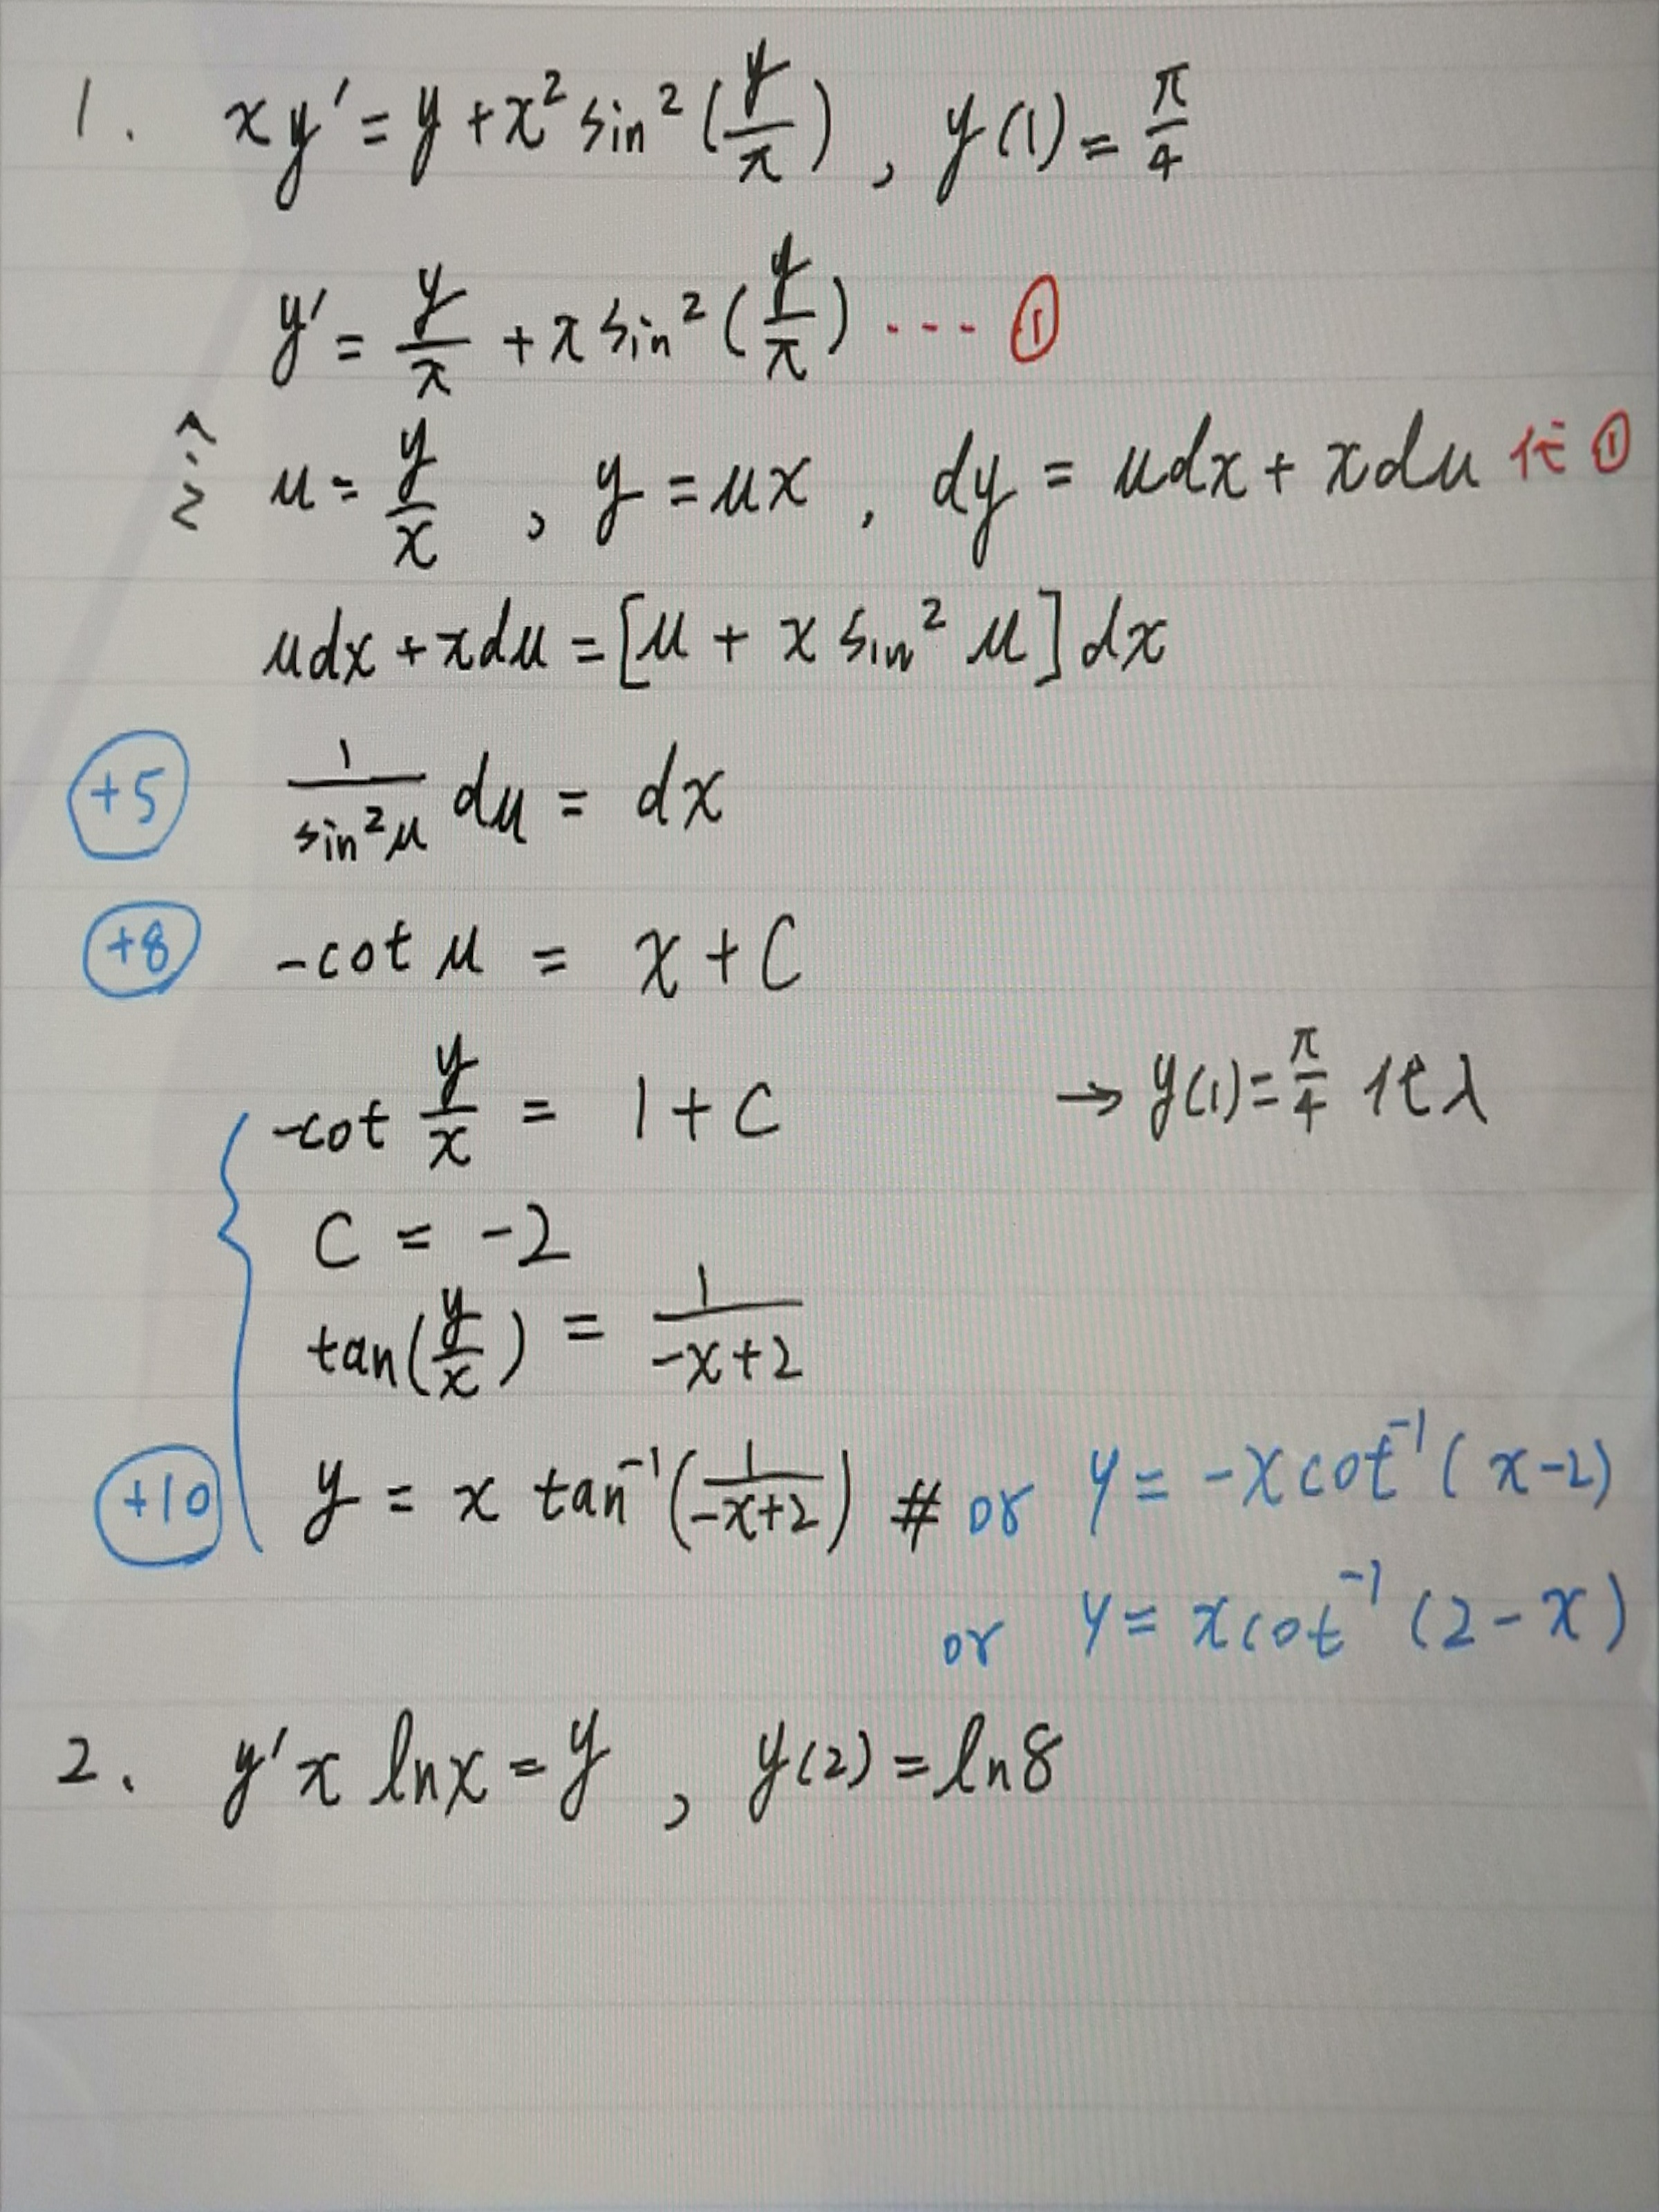 1. xy' = y + x² sin² (y/x) , y(1) = π/4
y' = y/x + x sin² (y/x) ... ①
令 u = y/x , y = ux , dy = udx + xdu 代①
udx + xdu = [u + x sin² u] dx
+5 1/sin²u du = dx
+8 -cot u = x + C
-cot y/x = 1 + C → y(1) = π/4 代入
C = -2
tan(y/x) = 1/(-x+2)
+10 y = x tan⁻¹(1/(-x+2)) # or y = -x cot⁻¹(x-2)
or y = x cot⁻¹(2-x)
2. y'x lnx = y , y(2) = ln8